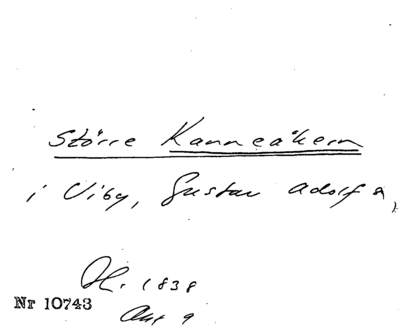 Större Kanneåkern
i Viby, Gustav Adolf s,
1838
Nr 10743
Akt 9